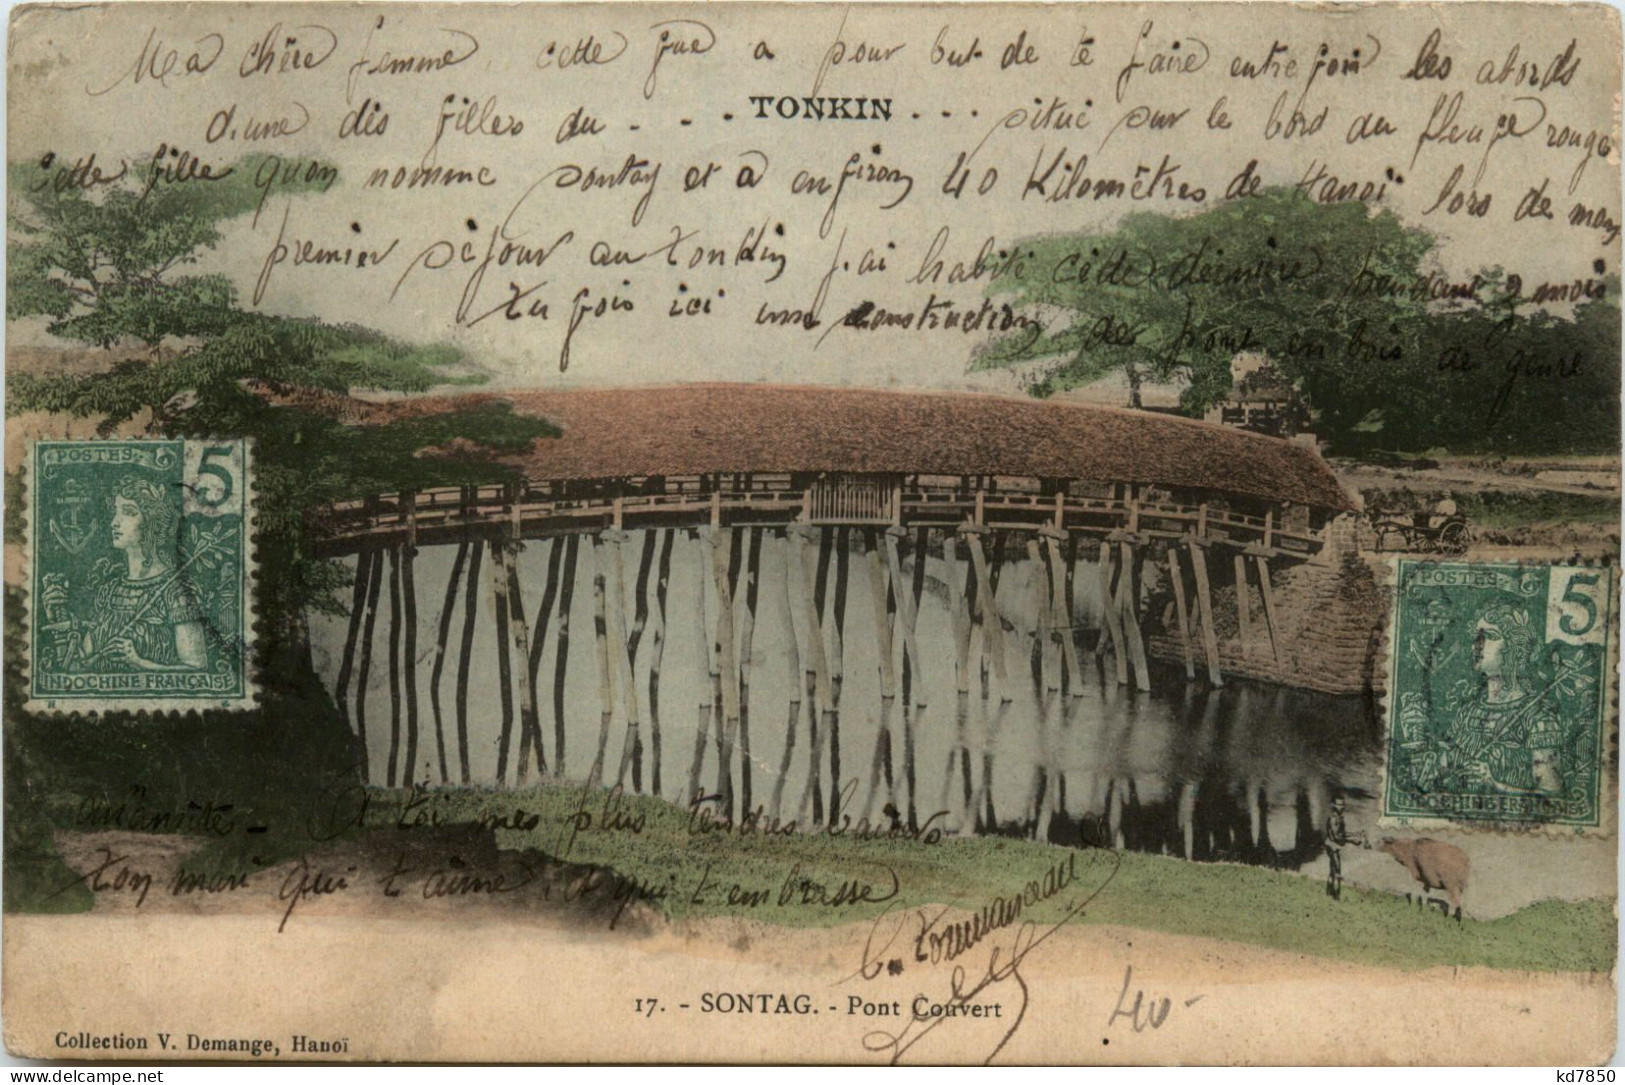 Ma chère femme, cette vue a pour but de te faire entrevoir les abords
d'une dis filles du . . . TONKIN . . . situé sur le bord du fleuve rouge
Cette fille qu'on nomme Sontay et à environ 40 Kilomètres de Hanoï lors de mon
premier séjour au Tonkin j'ai habité cette dernière pendant 2 mois
Tu vois ici une construction de pont en bois de genre
POSTES 5
INDOCHINE FRANÇAISE
POSTES 5
INDOCHINE FRANÇAISE
annamite - A toi mes plus tendres baisers
Ton mari qui t'aime, et qui t'embrasse
17. - SONTAG. - Pont Couvert
40-
Collection V. Demange, Hanoï
kd7850